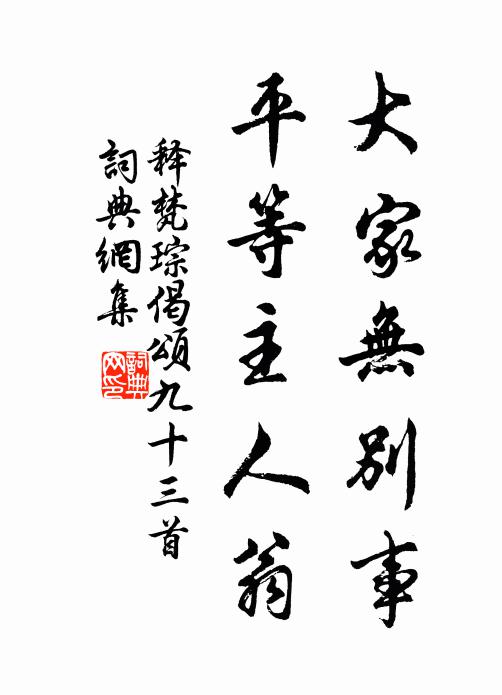 大家無別事
平等主人翁
释梵琮偈頌九十三首
詞典網集
詞典网印